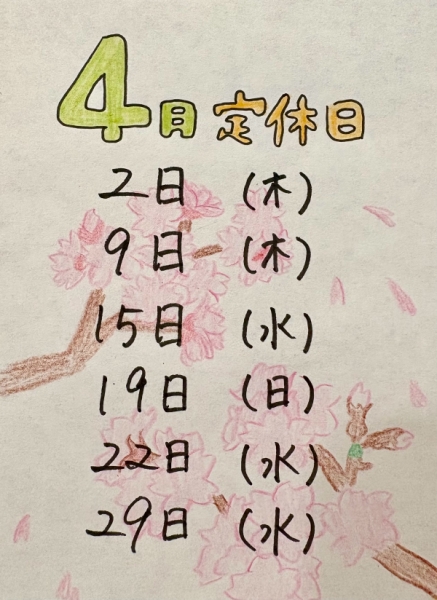 4月 定休日
2日 (木)
9日 (木)
15日 (水)
19日 (日)
22日 (水)
29日 (水)